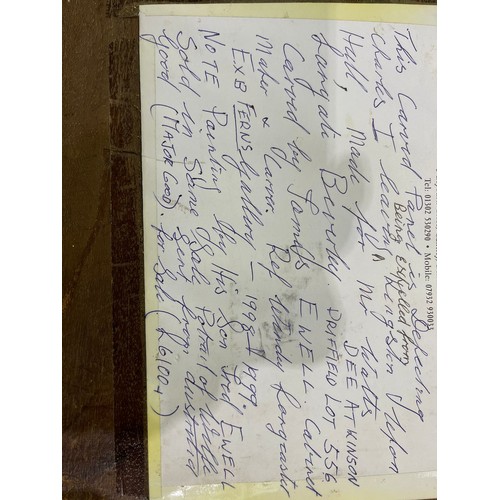 Tel: 01302 530290 • Mobile: 07932 93003
This Carved Panel is Depecting
Charles I leaven Kingston Upon
Being Expelled from
Hall, Made for Mr Watts
DEE ATKINSON
Beverly. DRIFFIELD LOT 556
Carved by James EWELL. Cabinet
Maker & Carver. Ref
EXB FERNS Gallery — 1998 + 1999
NOTE Painting by His Son Fred EWELL
Sold in Same Sale Potrail of Will
Good (MAJOR GOOD). Sent from Australia
for Sale (£6100+)